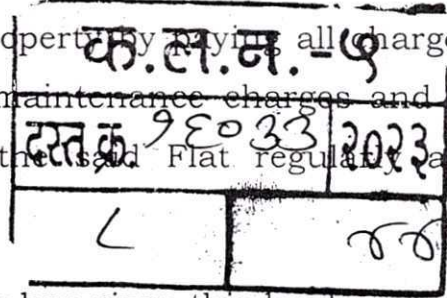 operty by paying all charg
क.ल.न.-५
maintenance charges and
the said Flat regularly a
दस्त क्र. १६०३३ २०२३
८ ४४